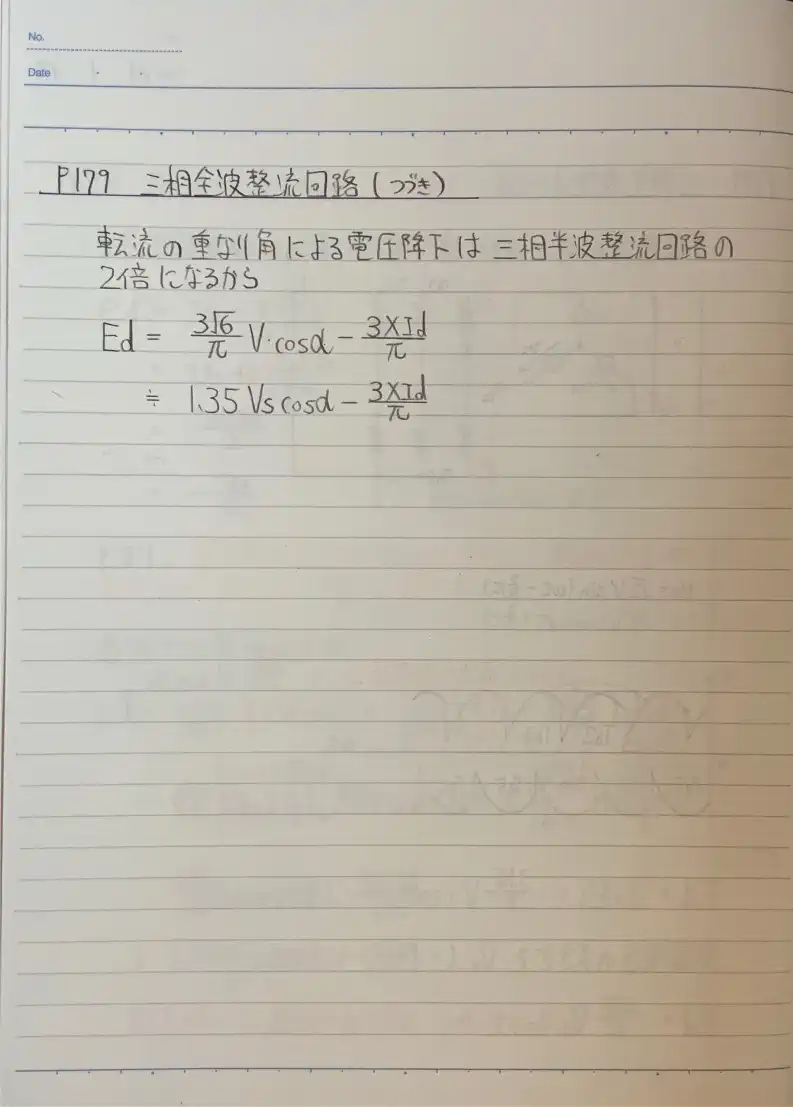 No.
Date
P179 三相全波整流回路(つづき)
転流の重なり角による電圧降下は三相半波整流回路の
2倍になるから
Ed = 3√6/π V・cosα − 3XId/π
≒ 1.35 Vs cosα − 3XId/π